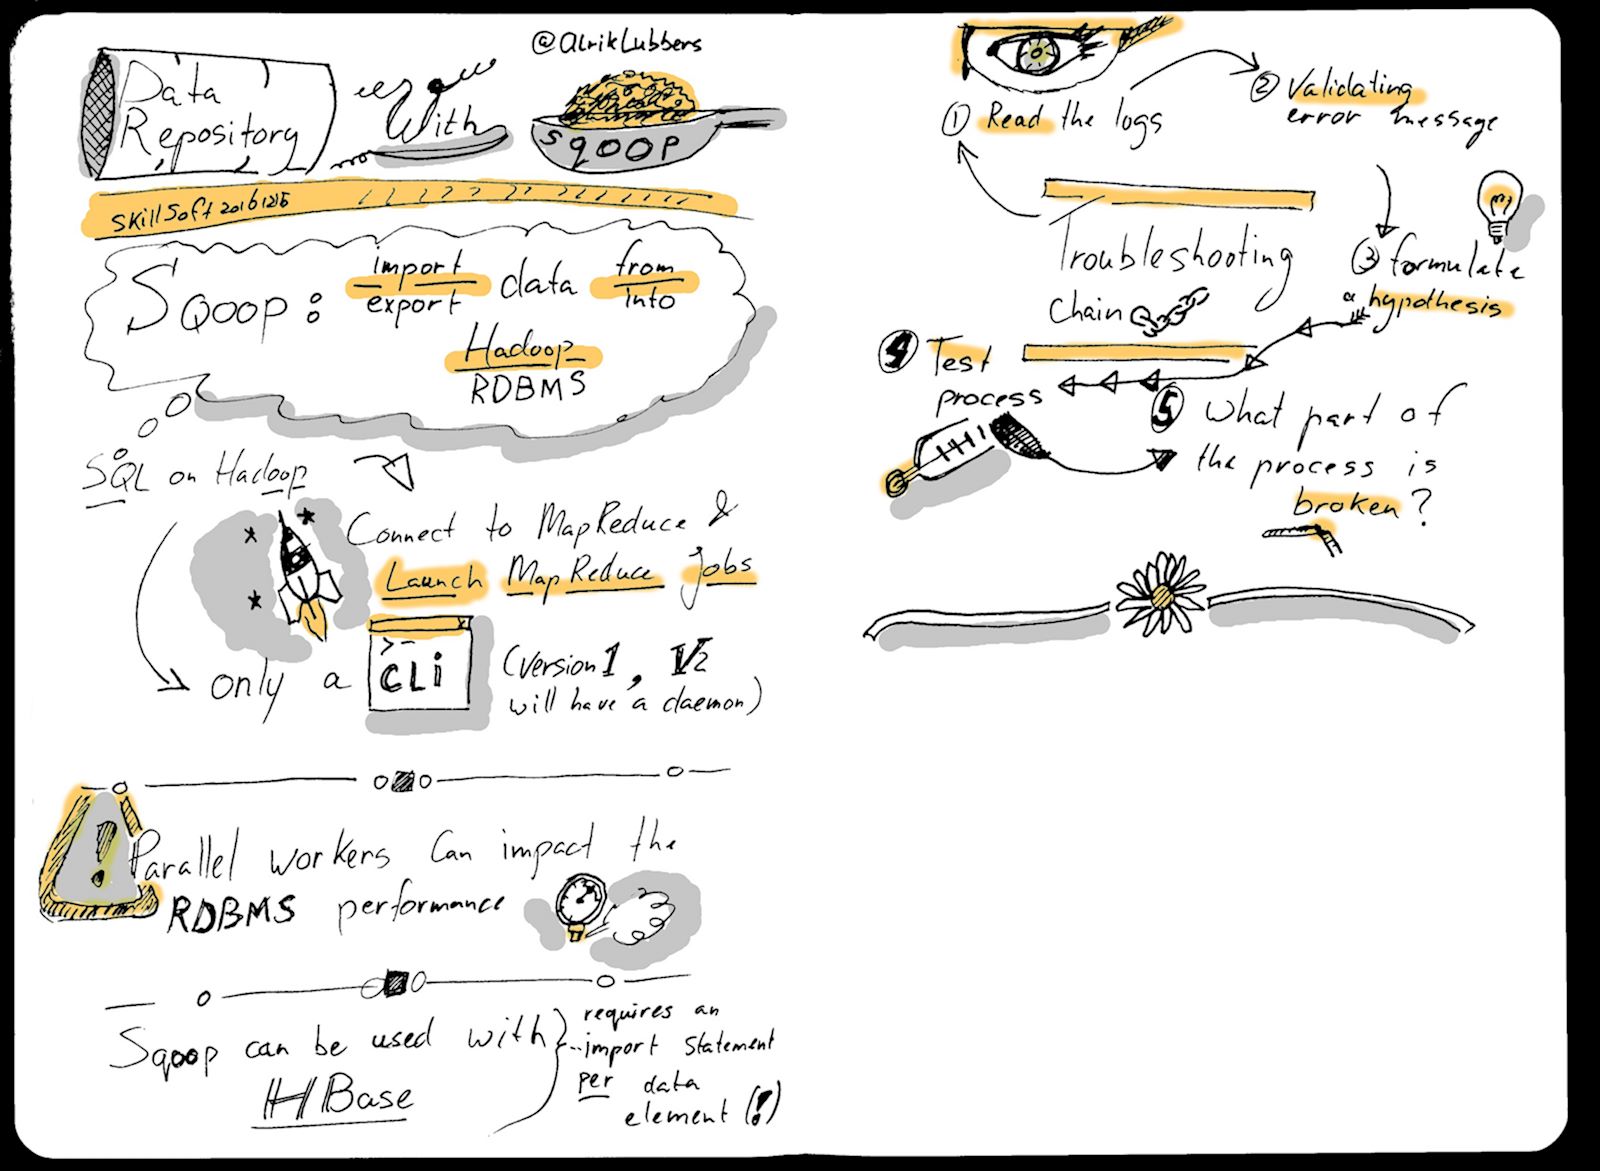 @AlrikLubbers
Data
Repository
With
Sqoop
SkillSoft 20161215
Sqoop: import data from
export into
Hadoop
RDBMS
SQL on Hadoop
Connect to MapReduce &
Launch MapReduce jobs
only a CLi (Version 1, V2
will have a daemon)
Parallel workers can impact the
RDBMS performance
Sqoop can be used with
HBase
requires an
import statement
per data
element (!)
① Read the logs
② Validating
error message
Troubleshooting
Chain
③ formulate
a hypothesis
④ Test
process
⑤ What part of
the process is
broken?